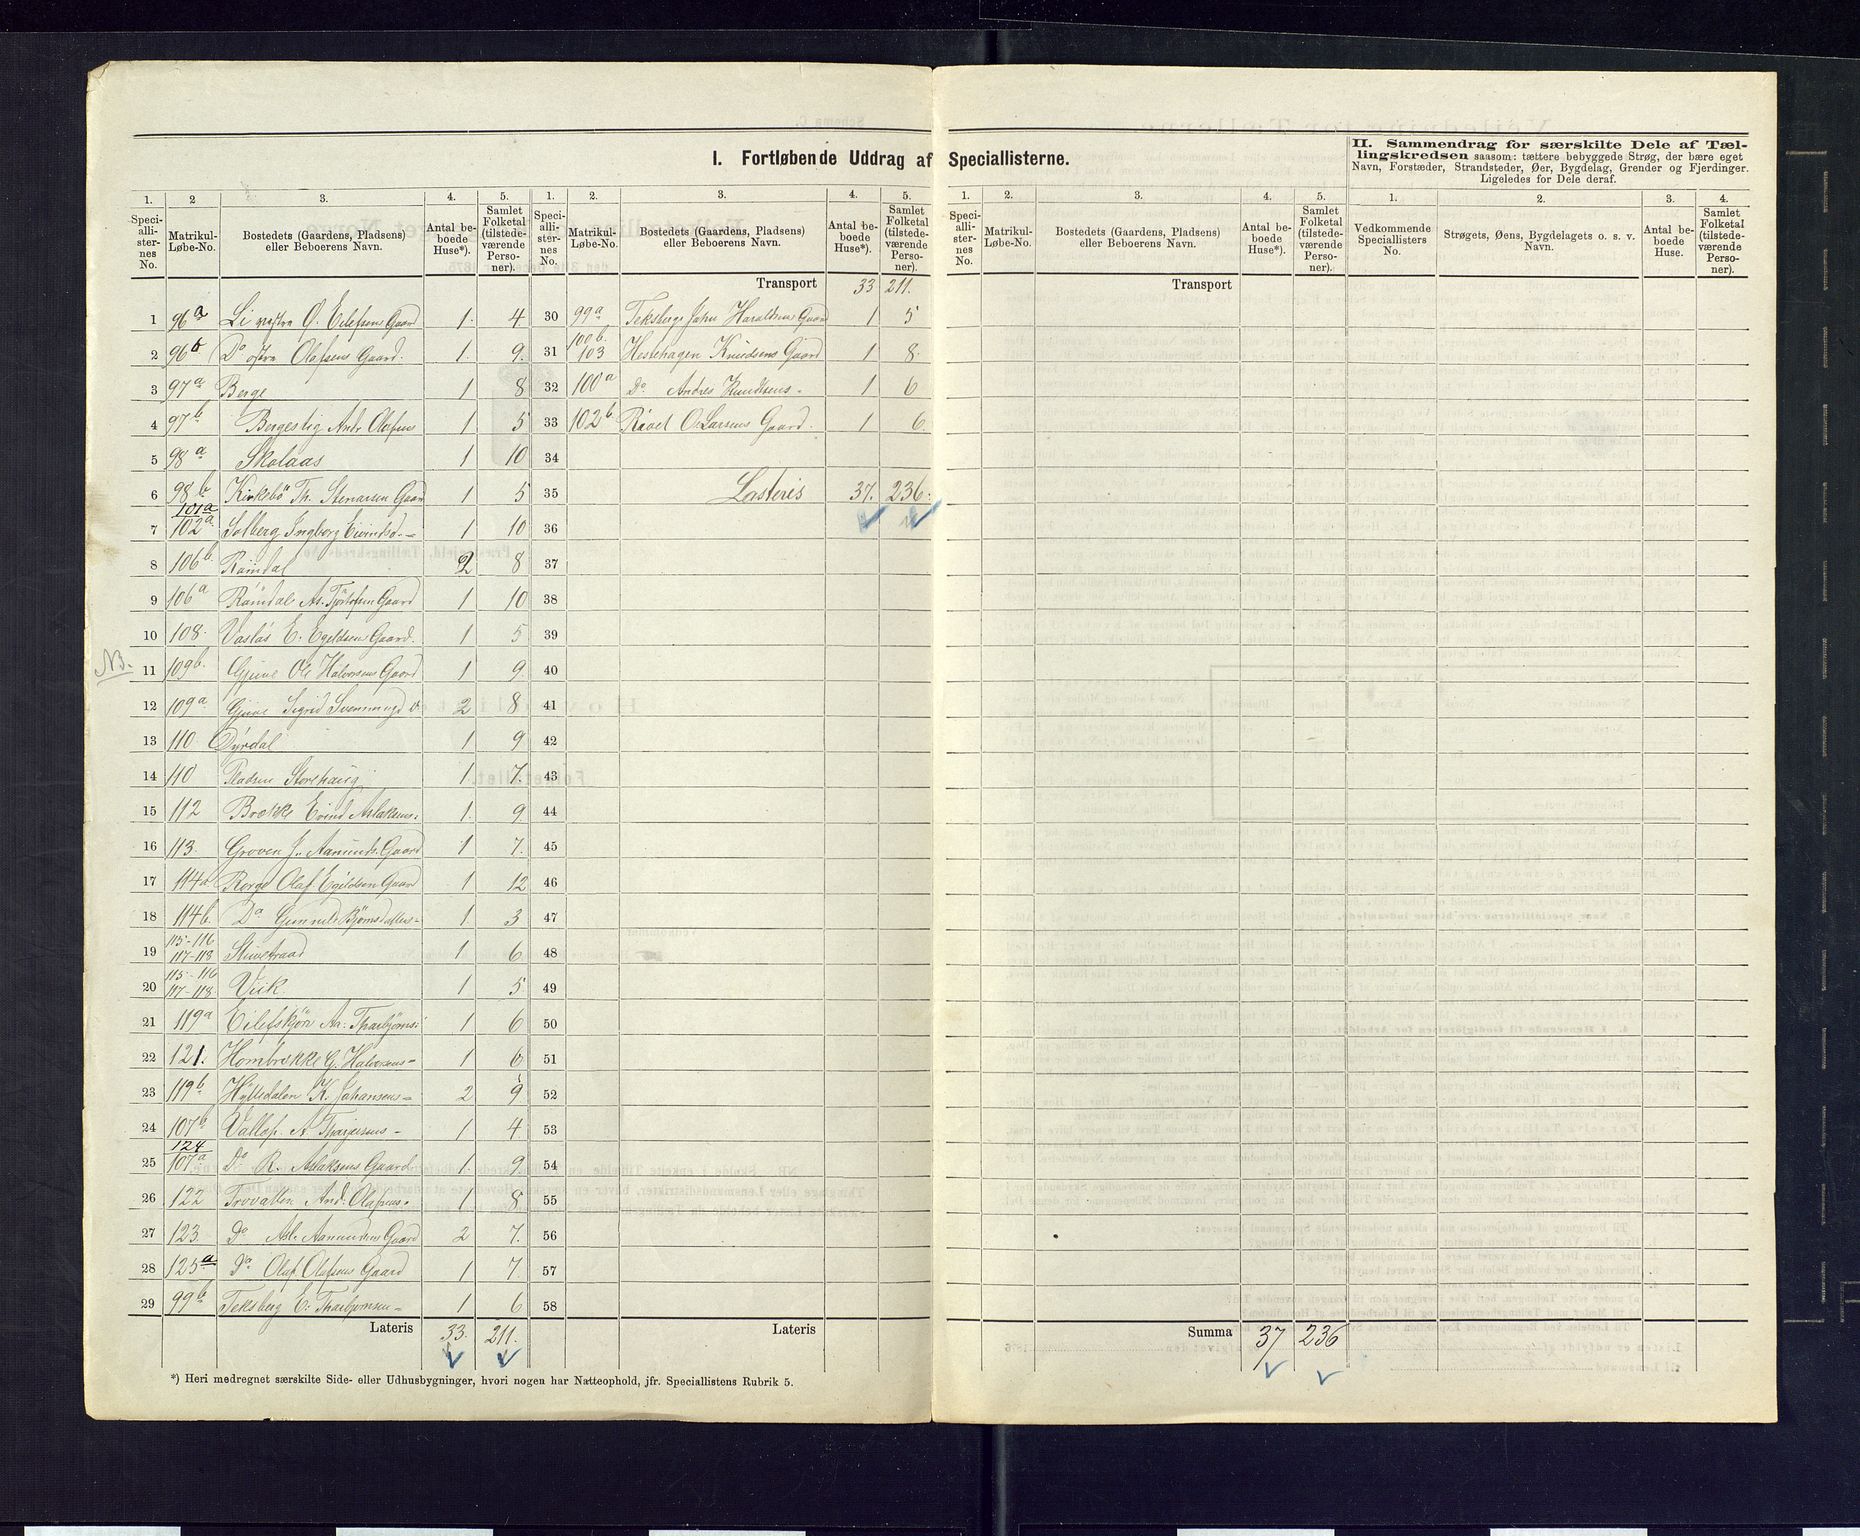 I. Fortløbende Uddrag af Speciallisterne.
II. Sammendrag for særskilte Dele af Tæl-
lingskredsen saasom: tættere bebyggede Strøg, der bære eget
Navn, Forstæder, Strandsteder, Øer, Bygdelag, Grender og Fjerdinger.
Ligeledes for Dele deraf.
1. 2 3. 4. 5. 1. 2. 3. 4. 5. 1. 2. 3. 4. 5. 1. 2. 3. 4.
Speciallisternes No. Matrikul-Løbe-No. Bostedets (Gaardens, Pladsens) eller Beboerens Navn. Antal beboede Huse*). Samlet Folketal (tilstedeværende Personer).
Speciallisternes No. Matrikul-Løbe-No. Bostedets (Gaardens, Pladsens) eller Beboerens Navn. Antal beboede Huse*). Samlet Folketal (tilstedeværende Personer).
Speciallisternes No. Matrikul-Løbe-No. Bostedets (Gaardens, Pladsens) eller Beboerens Navn. Antal beboede Huse*). Samlet Folketal (tilstedeværende Personer).
Vedkommende Speciallisters No. Strøgets, Øens, Bygdelagets o. s. v. Navn. Antal beboede Huse. Samlet Folketal (tilstedeværende Personer).
1 96a Li vestra O. Eilefsens Gaard 1. 4.
2 96b Do østra Olafsens Gaard. 1. 9.
3 97a Berge 1 8
4 97b Bergestig Andr Olafsens 1 5
5 98a Skolaas 1 10
6 98b Kirkebö Th. Stenarsen Gaard 1 5
7 101a 102a Solberg Ingborg Eivindsd. - 1 10
8 106b. Ramdal 2 8
9 106a Ramdal As. Gaard 1 10
10 108. Vaslås E. Egeldsens Gaard. 1 5
NB. 11 109b. Gjuve Ole Halvorsens Gaard 1 9.
12 109a Gjuve Sigrid 2 8
13 110 Dyrdal 1 9
14 110 Pladsen Storehaug 1. 7.
15 112 Brokke Eivind Aslaksens. 1. 9.
16 113. Groven J. Aamunds. Gaard 1 7.
17 114a Berge Olaf Egildsen Gaard 1 12
18 114b. Do Gunnild 1. 3
19 115-116 117-118 1 6
20 115-116 117-118. Vik. 1 5
21 119a Eilefskjön Aa. Tharbjørns: 1 6
22 121. Hombrokke G. Halvorsens - 1 6
23 119b Hyllsdalen K. Johansens - 2 9
24 107b Vallof. A 1 4
25 124 107a Do R. Aslaksens Gaard 1. 9.
26 122 Trovatten And. Olafsens. 1 8.
27 123. Do Asl. Aamundsens Gaard 2 7.
28 125a Do Olaf. Olafsens Gaard 1 7
29 99b Teksberg E. Tharbjørnsen - 1 6
Lateris 33. 211.
Transport 33 211.
30 99a Teksberge John Haraldsens Gaard 1 5
31 100b. 103 Hestehagen Knudsens Gaard 1 8.
32 100a Do Andres Knudsens - 1 6
33 102b. O. Larsens Gaard. 1 6.
34
35 Lateris 37. 236.
36
37
38
39
40
41
42
43
44
45
46
47
48
49
50
51
52
53
54
55
56
57
58
Lateris
Transport
Summa 37 236
*) Heri medregnet særskilte Side- eller Udhusbygninger, hvori nogen har Natteophold, jfr. Speciallistens Rubrik 5.